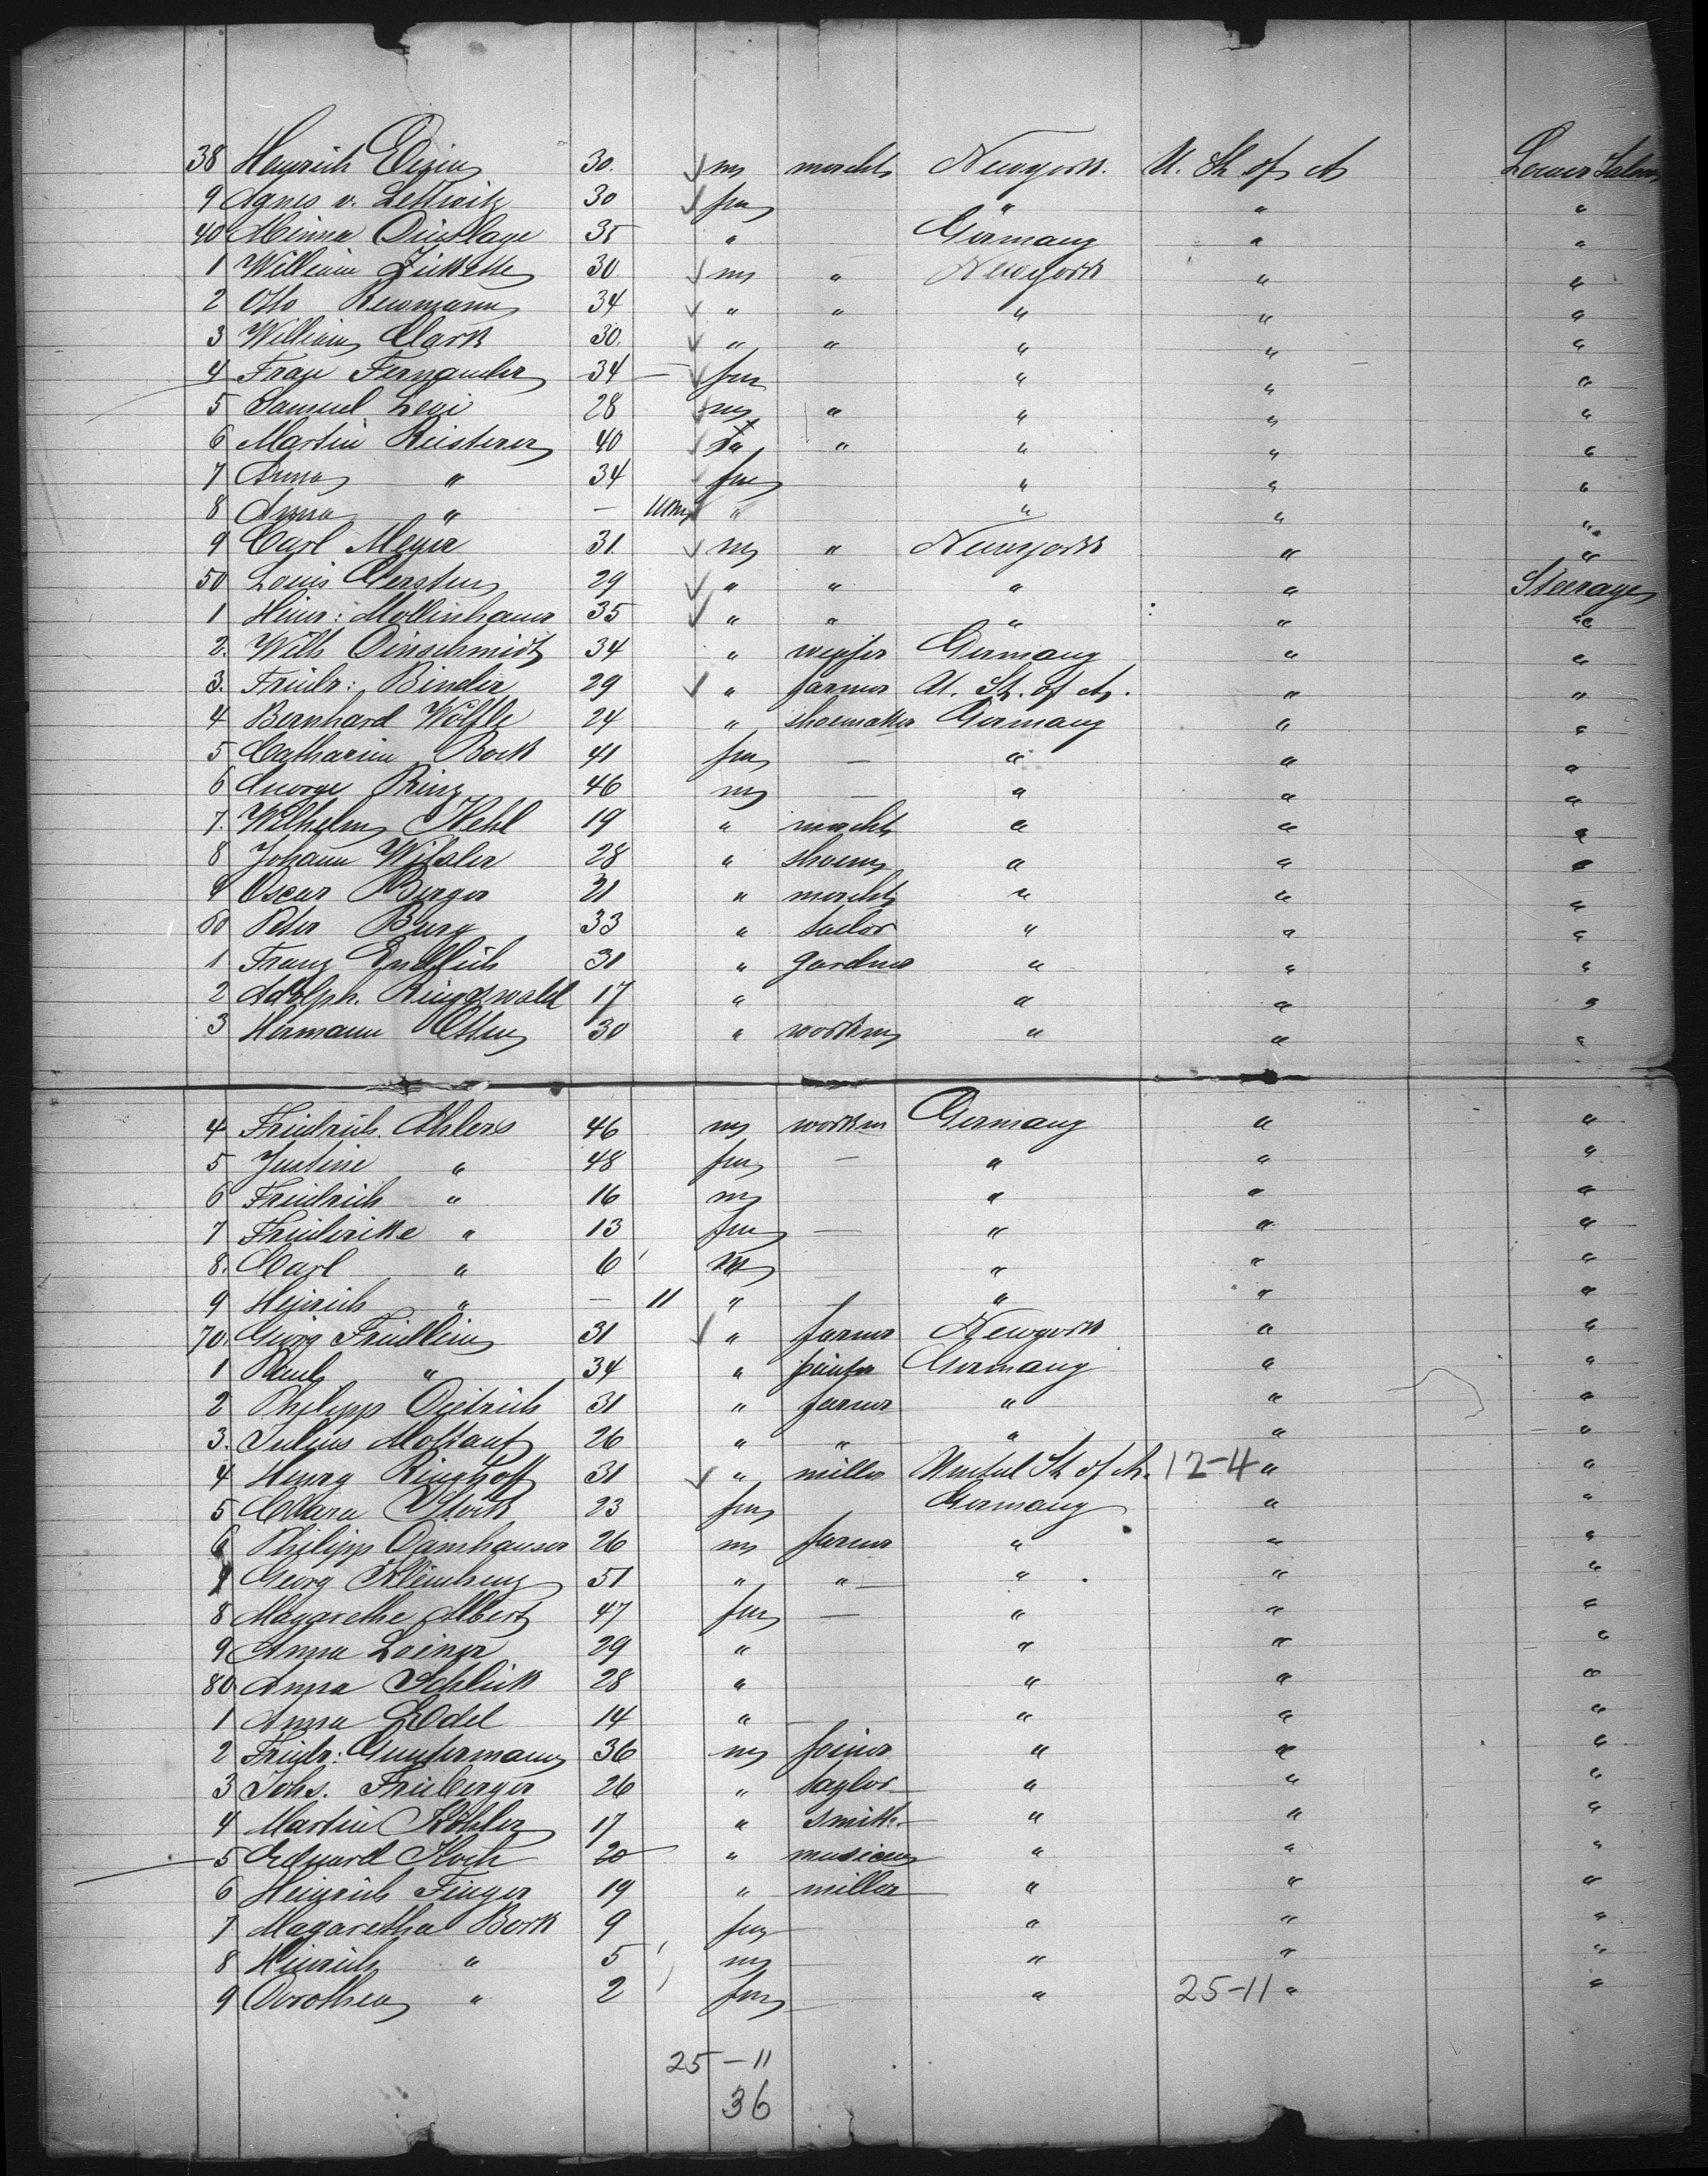 38 Heinrich 30. m mercht Newyork. U. St of A Lower Saloon
9 Agnes v. Lettwitz 30 fm " " "
40 Minna Dinklage 35 " Germany " "
1 William 30. m " Newyork " "
2 Otto Rewmann 34 " " " " "
3 William Clark 30. " " " " "
4 Frau Fernander 34 — fm " " "
5 Samuel Levi 28 m " " " "
6 Martin Reisterer 40 " " " " "
7 Anna " 34 fm " " "
8 Anna " — 11m " " " "
9 Carl Meyer 31. m " Newyork " "
50 Louis Gersten 29 " " " " Steerage
1 Heinr: Mollenhauer 35 " " " " "
2. Wilh Dinschmidt 34 " Germany " "
3. Friedr: Binder 29 " farmer U. St. of A. " "
4 Bernhard Wölfle 24 " shoemaker Germany " "
5 Catharine Bock 41 fm — " " "
6 George Rinz 46 m — " " "
7. Wilhelm Kehl 19 " mercht " " "
8 Johann Wissler 28 " shoem " " "
9 Oscar Berger 21 " mercht " " "
60 Peter Burg 33 " tailor " " "
1 Franz Endlich 31 " gardner " " "
2 Adolph. Ringswald 17 " " " "
3 Hermann Otten 30 " workm " " "
4 Friedrich Ahlers 46 m workm Germany " "
5 Justine " 48 fm — " " "
6 Friedrich " 16 m " " "
7 Friederike " 13 fm — " " "
8. Carl " 6 m " " "
9 Heinrich " — 11 " " " "
70. Georg Friedlein 31 " farmer Newyork " "
1 Paul " 34 " painter Germany " "
2 Philipp Dietrich 31 " farmer " " "
3. Julius Moltauf 26 " " " " "
4 Henry Ringhoff 31 " miller United St of A. 12-4 " "
5 Clara Stock 23 fm Germany " "
6 Philipp Damhauser 26 m farmer " " "
7 Georg Kleinhenz 51 " " " " "
8 Magarethe Albert 47 fm — " " "
9 Anna Loiner 29 " " " "
80 Anna Schlick 28 " " " "
1 Anna Edel 14 " " " "
2 Friedr: Guntermann 36 m joiner " " "
3 Johs. Frieberger 26 " taylor " " "
4 Martin Köhler 17 " smith " " "
5 Eduard Koch 20 " musician " " "
6 Heinrich Finger 19 " miller " " "
7 Magaretha Bork 9 fm " " "
8 Heinrich " 5 m " " "
9 Dorothea " 2 fm " 25-11 " "
25-11
36